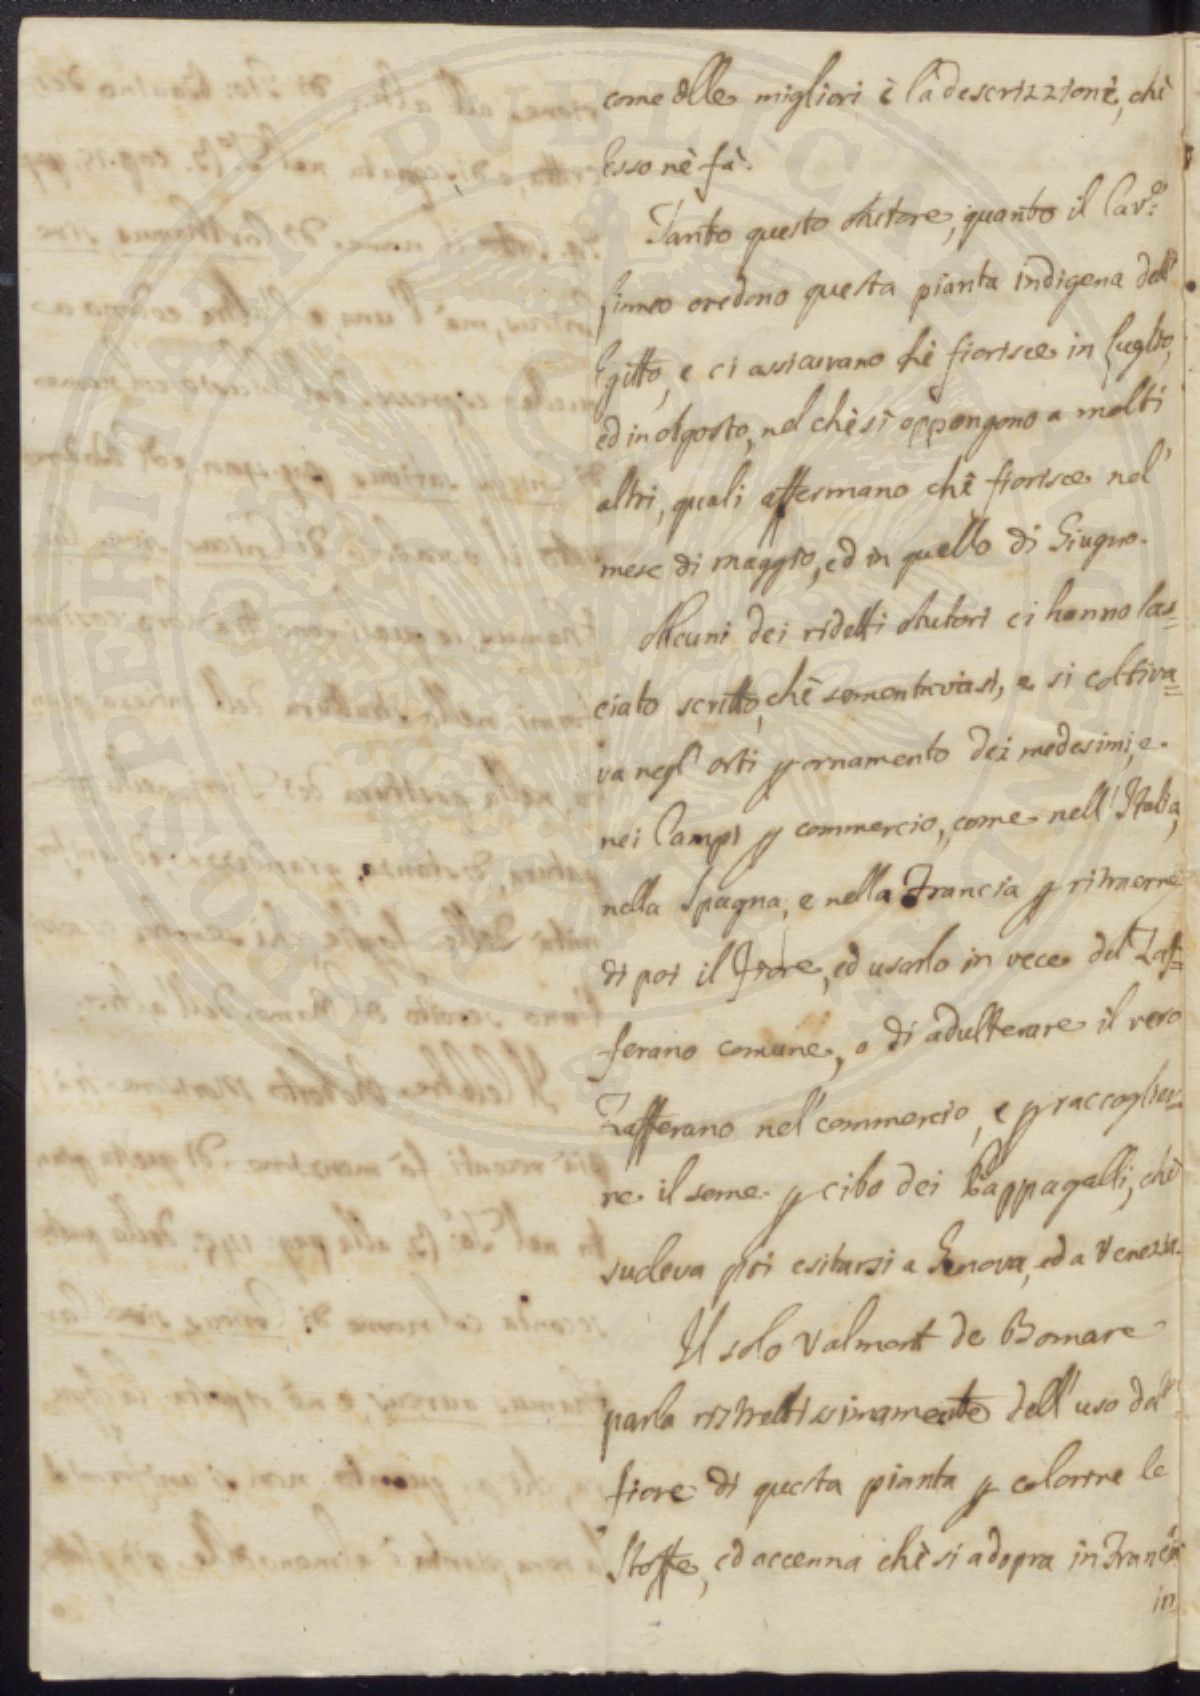 come dlle migliori è la descrizzione, chè
Esso nè fà.
Tanto questo Autore, quanto il Cav.e
Linneo credono questa pianta indigena dell'
Egitto, e ci assicurano chè fiorisce in Luglio,
ed in Agosto, nel chè si oppongono a molti
altri, quali affermano chè fiorisce nel'
mese di maggio, ed in quello di Giugno.
Alcuni dei ridetti Autori ci hanno las=
ciato scritto, chè sementavasi, e si coltiva=
va negl' orti p ornamento dei medesimi, e
nei Campi p commercio, come nell' Italia,
nella Spagna, e nella Francia p ritraerne
di poi il Fiore, ed usarlo in vece del Zaf=
ferano comune, o di adulterare il vero
Zafferano nel' commercio, e p raccoglier=
ne il seme p cibo dei Pappagalli, chè
soleva poi esitarsi a Genova, ed a Venezia.
Il solo Valmont de Bomare
parla ristrettissimamente dell' uso del'
fiore di questa pianta p colorire le
Stoffe, ed accenna chè si adopra in Francia
in
OSPERITATI PUBLICAE